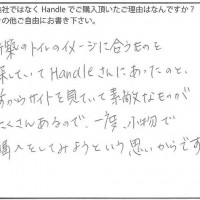 社ではなく Handle でご購入頂いたご理由はなんですか?
の他ご自由にお書き下さい。
築のトイレのイメージに合うものを
探していてHandleさんにあったのと、
前からサイトを見ていて素敵なものが
たくさんあるので、一度、小物で
購入をしてみようという思いからです